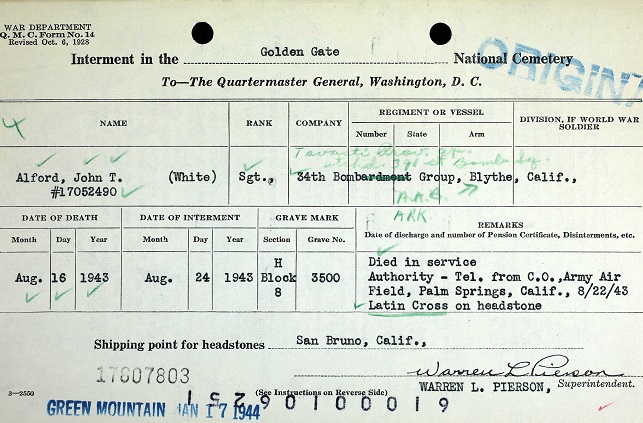 WAR DEPARTMENT
Q. M. C. Form No. 14
Revised Oct. 6, 1928
ORIGINA
Interment in the Golden Gate National Cemetery
To—The Quartermaster General, Washington, D. C.
NAME RANK COMPANY REGIMENT OR VESSEL DIVISION, IF WORLD WAR SOLDIER
Number State Arm
391 st Bomb Sq.
Alford, John T. (White) Sgt., 34th Bombardment Group, Blythe, Calif.,
#17052490
A.A.B.
ARK.
DATE OF DEATH DATE OF INTERMENT GRAVE MARK REMARKS
Month Day Year Month Day Year Section Grave No. Date of discharge and number of Pension Certificate, Disinterments, etc.
Aug. 16 1943 Aug. 24 1943 H Block 8 3500
Died in service
Authority - Tel. from C.O.,Army Air
Field, Palm Springs, Calif., 8/22/43
Latin Cross on headstone
Shipping point for headstones San Bruno, Calif.,
17607803
Warren L Pierson
WARREN L. PIERSON, Superintendent.
3—2550 (See Instructions on Reverse Side)
GREEN MOUNTAIN JAN 17 1944